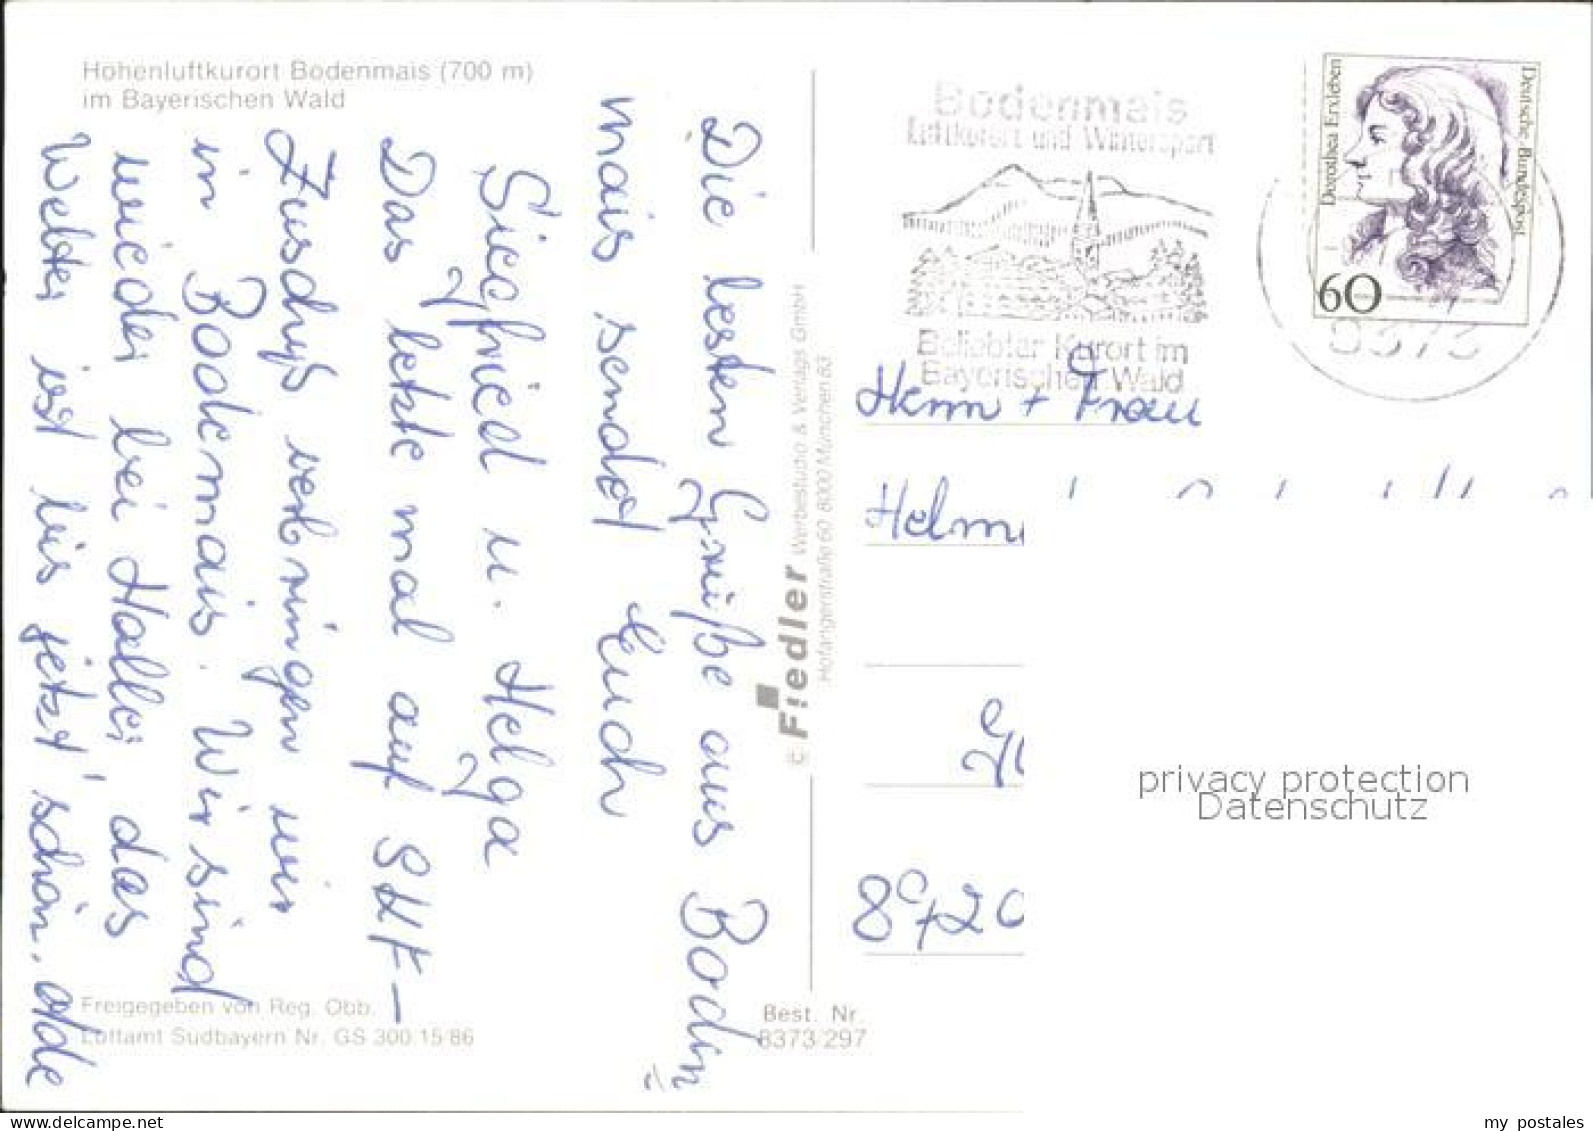 Höhenluftkurort Bodenmais (700 m)
im Bayerischen Wald
Die besten Grüße aus Boden
mais sendet Euch
Siegfried u. Helga
Das letzte mal auf SHF-
Zusdruß verbringen wir
in Bodenmais. Wir sind
wieder bei Haller das
Wetter ist bis jetzt schön. Ade
Freigegeben von Reg. Obb.
Luftamt Südbayern Nr. GS 300/15/86
Best. Nr.
8373/297
© Fiedler Werbestudio & Verlags GmbH
Hofangerstraße 60 8000 München 83
Bodenmais
Luftkurort und Wintersport
Beliebter Kurort im
Bayerischen Wald
8373
Dorothea Erxleben
Deutsche Bundespost
60
Herrn + Frau
Helm
privacy protection
Datenschutz
my postales